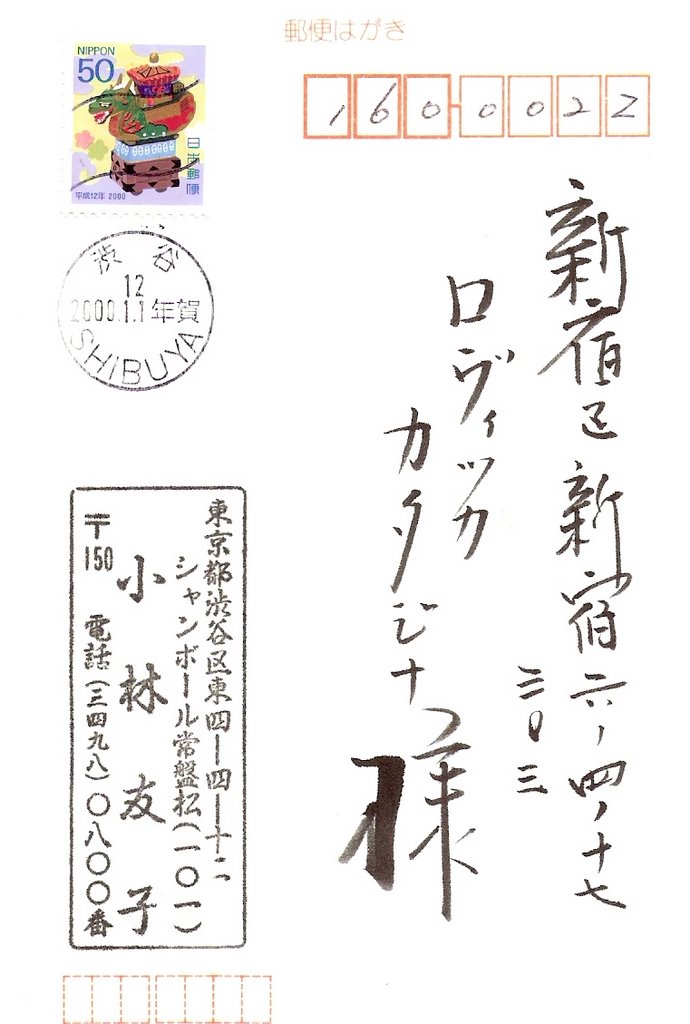 郵便はがき
NIPPON
50
日本郵便
平成12年 2000
渋谷
12
2000.1.1年賀
SHIBUYA
1600022
新宿区新宿六ノ四ノ十七
三〇三
ロヴィッカ
カタジナ様
東京都渋谷区東四ー四ー十二
シャンボール常盤松(一〇一)
小林友子
〒150 電話(三四九八)〇八〇〇番